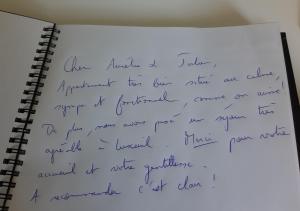 Cher Aurélie et Julien,
Appartement très bien situé au calme,
sympa et fonctionnel, comme on aime!
De plus, nous avons passé un séjour très
agréable à Luxeuil. Merci pour votre
accueil et votre gentillesse.
A recommander c'est clair!